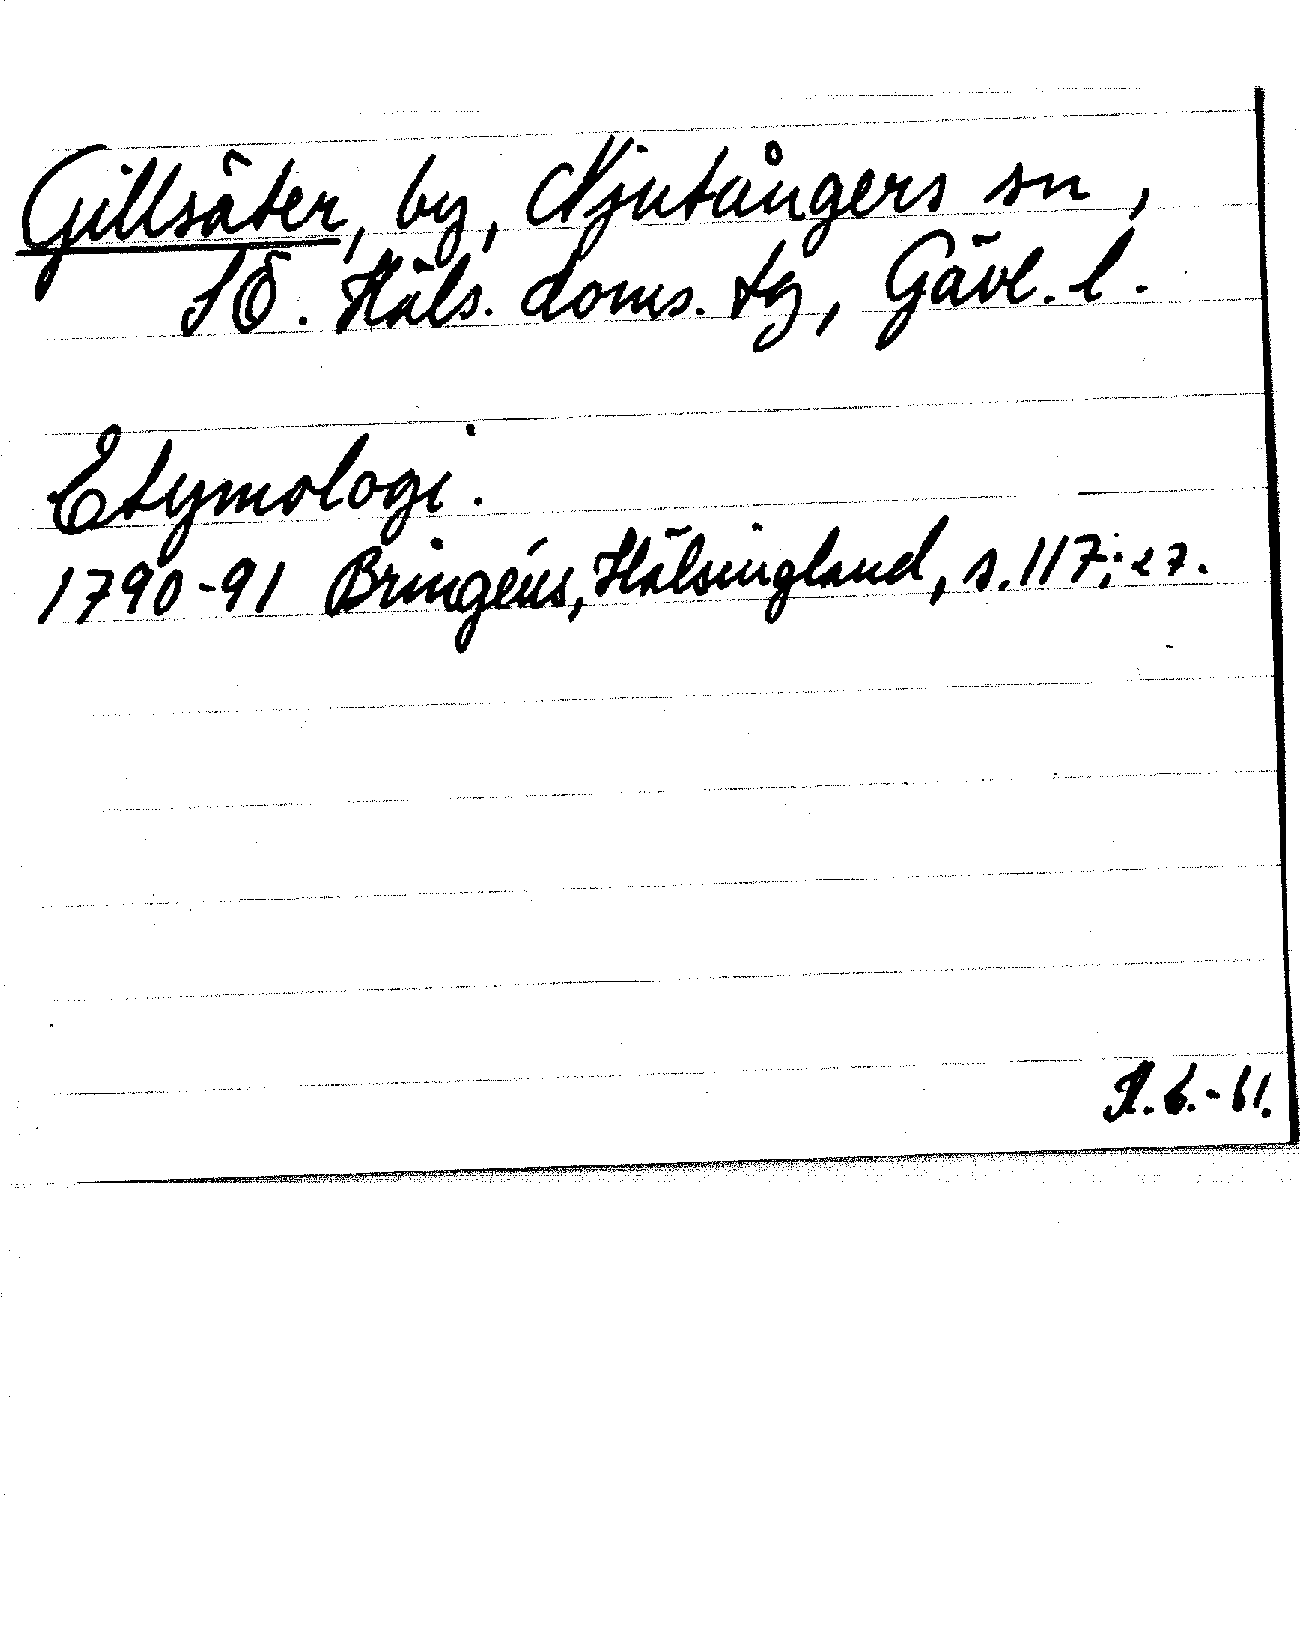 Gillsäter, by, Njutångers sn,
SÖ. Häls. doms. tg, Gävl. l.
Etymologi.
1790-91 Bringéus, Hälsingland, s. 117; 27.
A.b.-61.